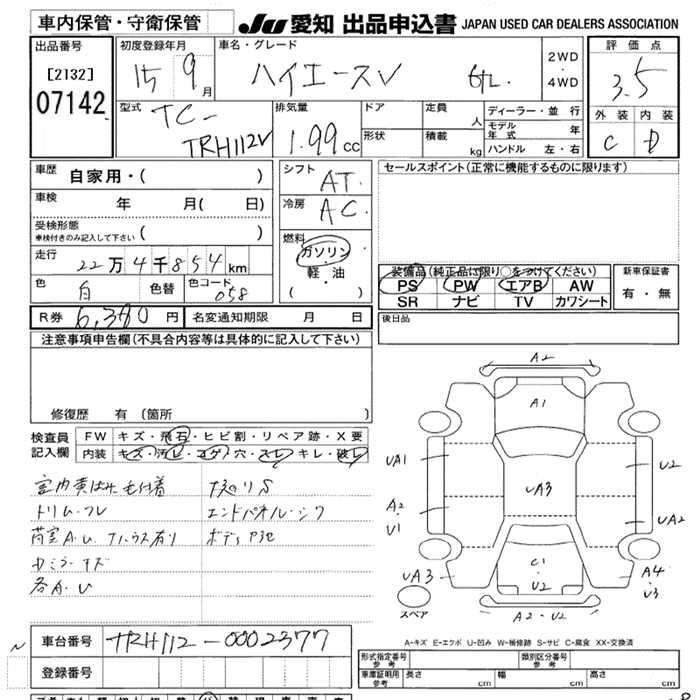 車内保管・守衛保管
JU 愛知 出品申込書 JAPAN USED CAR DEALERS ASSOCIATION
出品番号
[2132]
07142
初度登録年月
15 9月
車名・グレード
ハイエースV
2WD
・
4WD
評価点
3.5
外装 内装
C D
型式
TC-
TRH112V
排気量
1.99cc
ドア
形状
定員 人
積載 kg
ディーラー・並行
モデル年式 年
ハンドル 左・右
車歴
自家用・( )
車検
年 月( 日)
受検形態
車検付きのみ記入して下さい ( )
走行
22万4千854km
色 白 色替 色コード 058
シフト AT.
冷房 AC.
燃料
ガソリン
軽・油
( )
セールスポイント(正常に機能するものに限ります)
装備品(純正品に限り○をつけてください)
PS PW エアB AW
SR ナビ TV カワシート
新車保証書
有・無
R券 6,380円 名変通知期限 月 日
後日品
注意事項申告欄(不具合内容等は具体的に記入して下さい)
修復歴 有(箇所
検査員記入欄
FW キズ・飛石・ヒビ割・リペア跡・X要
内装 キズ・汚レ・コゲ・穴・スレ・キレ・破レ
トリム・フレ
エンドパネル・シワ
各A・U
A2
A1
UA1
U2
A2
U1
UA3
UA2
UA3
C1
U2
A4
U3
スペア
A2-U2
A-キズ E-エクボ U-凹み W-補修跡 S-サビ C-腐食 XX-交換済
N
車台番号 TRH112-0002377
登録番号
形式指定番号 参考
類別区分番号 参考
車庫証明用 参考 長さ cm 幅 cm 高さ cm